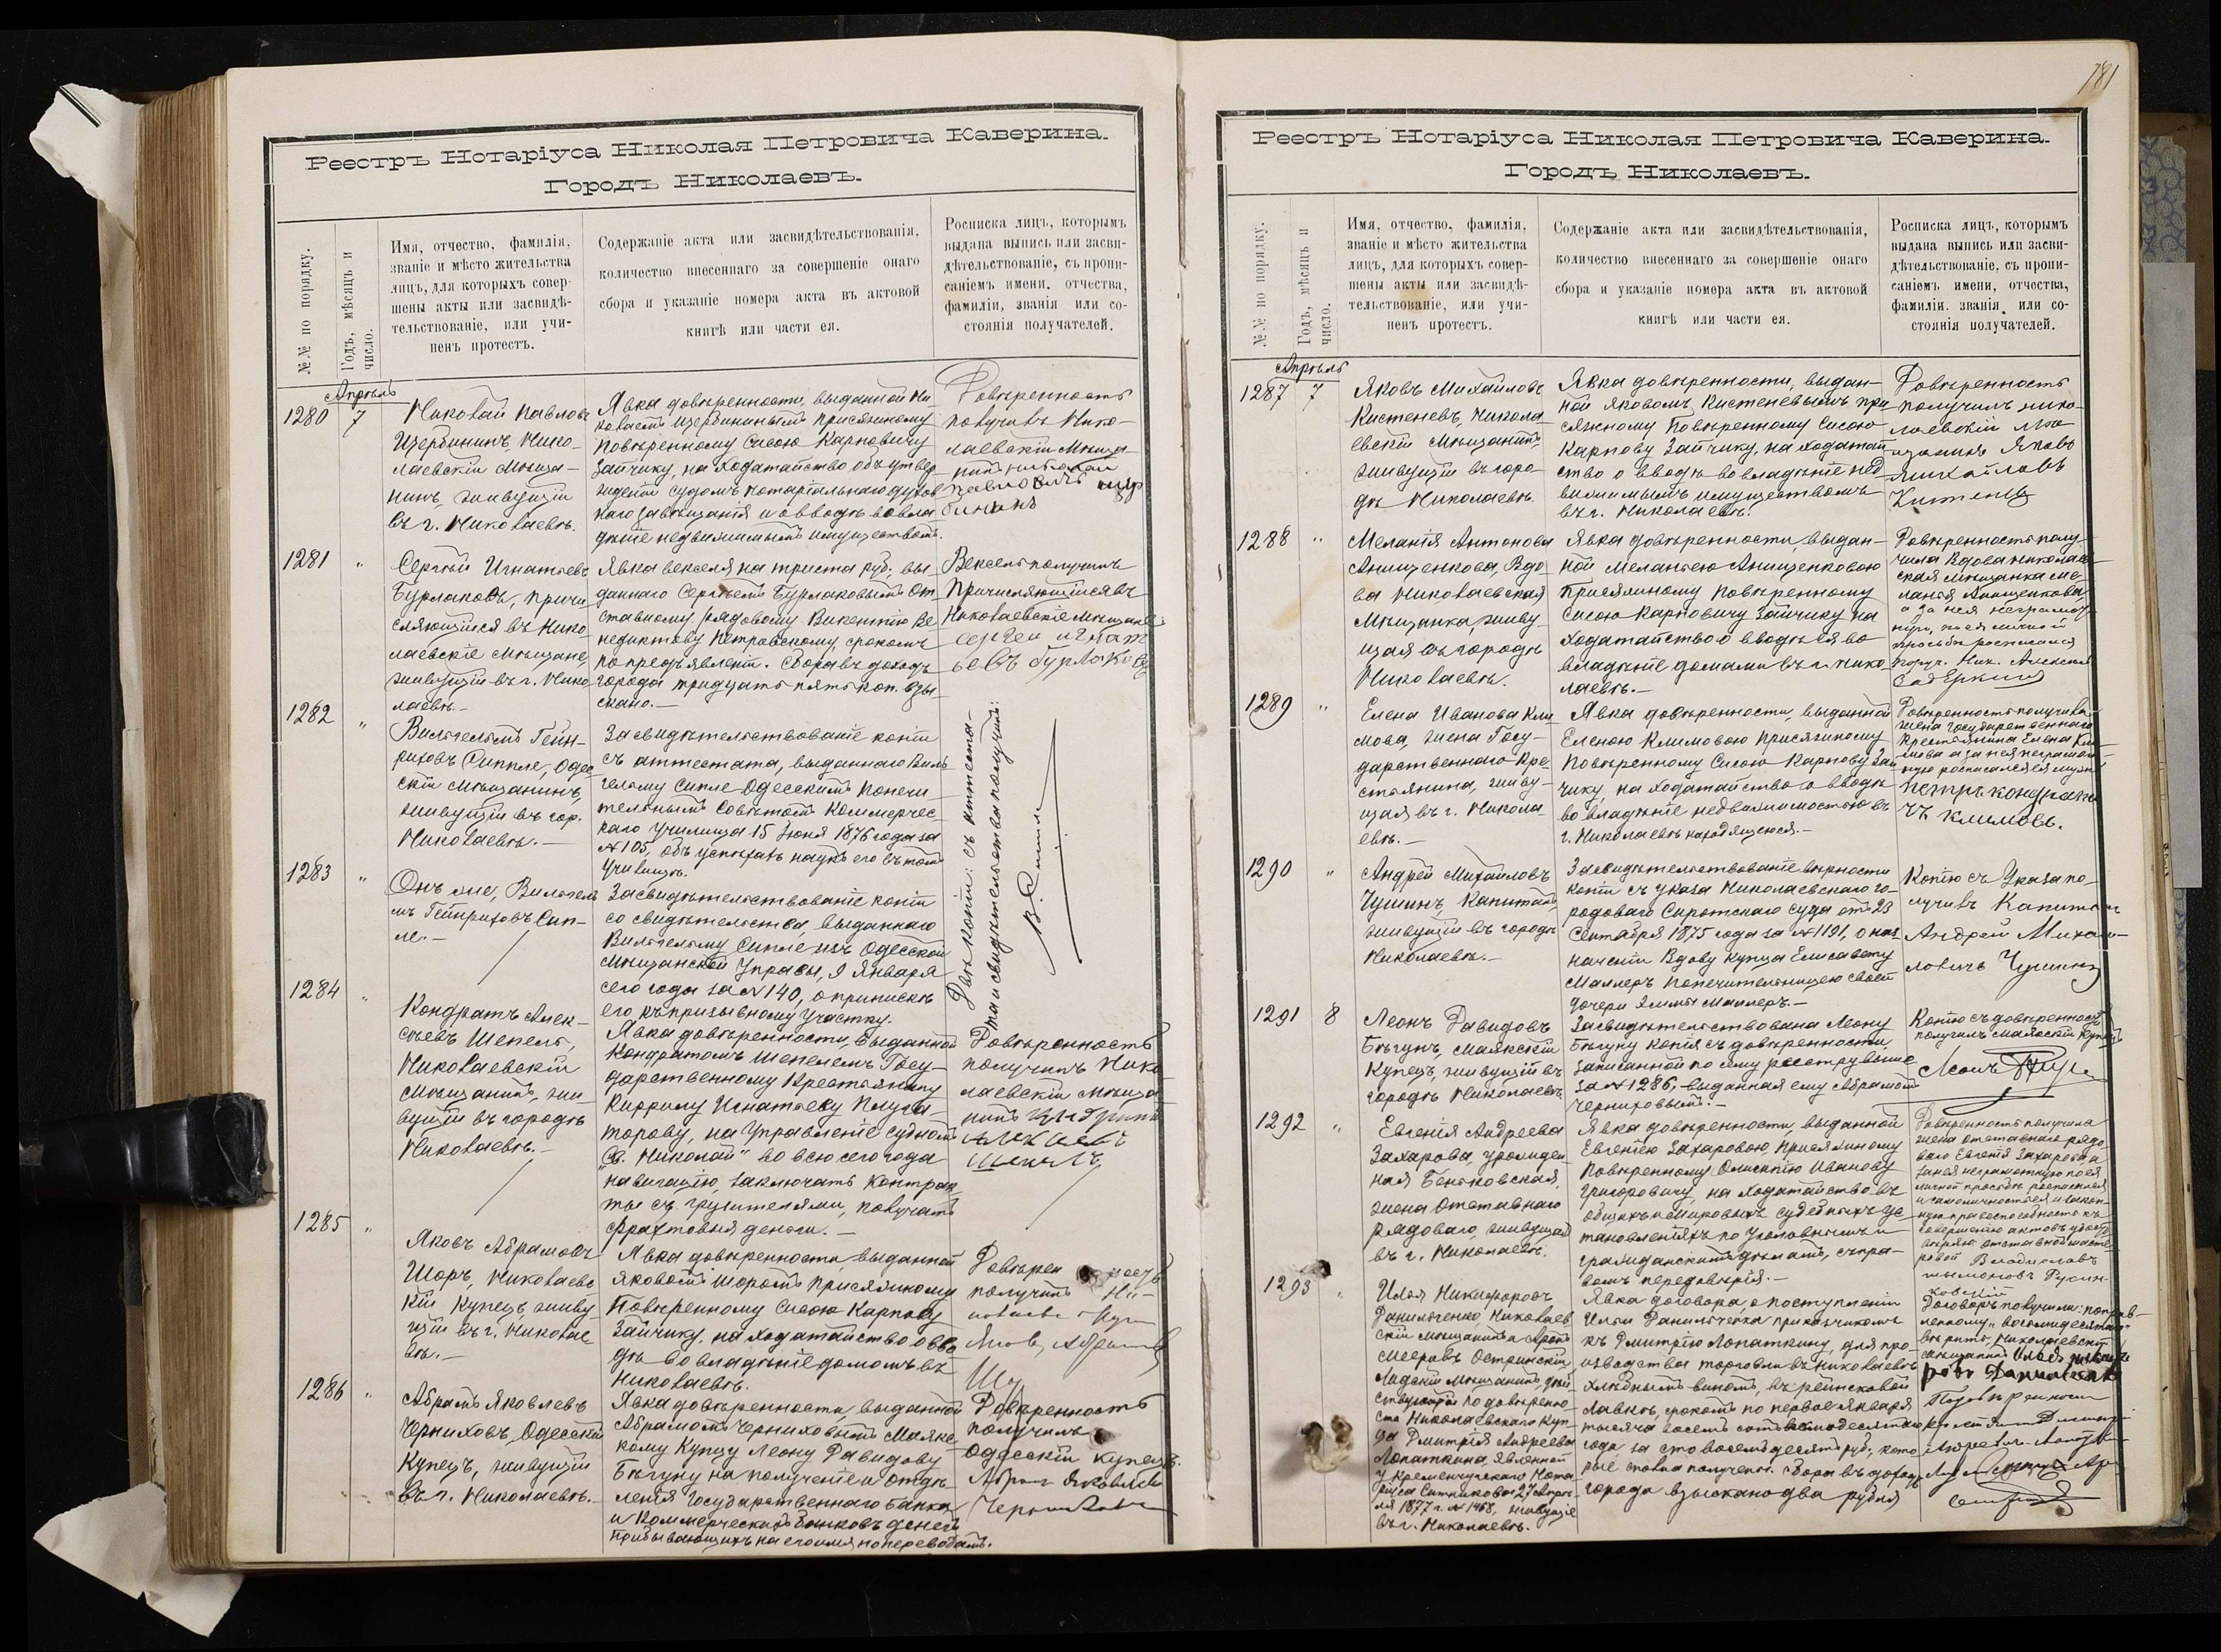 Реестръ Нотаріуса Николая Петровича Каверина.
Городъ Николаевъ.
№№ по порядку.
Годъ, мѣсяцъ и
число.
Имя, отчество, фамилія,
званіе и мѣсто жительства
лицъ, для которыхъ совер-
шены акты или засвидѣ-
тельствованіе, или учи-
ненъ протестъ.
Содержаніе акта или засвидѣтельствованія,
количество внесеннаго за совершеніе онаго
сбора и указаніе номера акта въ актовой
книгѣ или части ея.
Росписка лицъ, которымъ
выдана выпись или засви-
дѣтельствованіе, съ пропи-
саніемъ имени, отчества,
фамиліи, званія или со-
стоянія получателей.
Апрѣль
1280 7
Николай Павловъ
Щербининъ, Нико-
лаевскій мѣща-
нинъ, живущій
въ г. Николаевѣ.
Явка довѣренности, выданной Ни-
колаемъ Щербининымъ Присяжному
Повѣренному Сысою Карповичу
Зайчику, на ходатайство объ утвер-
жденіи судомъ нотаріальнаго духов
наго завѣщанія и о вводѣ во вла
дѣніе недвижимымъ имуществомъ.
Довѣренность
получилъ Нико-
лаевскій Мѣща-
нинъ Николай
1281 "
Сергѣй Игнатьевъ
Бурлаковъ, причи
сляющійся въ Нико-
лаевскіе мѣщане,
живущій въ г. Нико-
лаевѣ.-
Явка векселя на триста руб., вы-
даннаго Сергѣемъ Бурлаковымъ От
ставному рядовому Викентію Бе
недиктову Петровскому, срокомъ
по предъявленіи. Сбора въ доходъ
города тридцать пять коп. взы
скано.-
Вексель получилъ
Причисляющійся въ
Николаевскіе Мѣщане
сергей игнат
ьевъ бурлаковъ
1282 "
Вильгельмъ Гейн-
риховъ Сиппле, Одес
скій мѣщанинъ,
живущій въ гор.
Николаевѣ.-
Засвидѣтельствованіе копіи
съ аттестата, выданнаго Виль
гельму Сипле Одесскимъ Попечи
тельнымъ Совѣтомъ Коммерчес-
каго Училища 15 Іюня 1876 года за
№ 105, объ успѣхахъ наукъ его въ томъ
Училищѣ.
Двѣ копіи: съ аттеста-
та и свидѣтельства получилъ:
1283 "
Онъ же, Вильгель
мъ Гейнриховъ Сип-
ле.-
Засвидѣтельствованіе копіи
со свидѣтельства, выданнаго
Вильгельму Сипле изъ Одесской
Мѣщанской Управы, 9 Января
сего года за № 140, о припискѣ
его къ призывному участку.
1284 "
Кондратъ Алек-
сѣевъ Шепель,
Николаевскій
мѣщанинъ, жи-
вущій въ городѣ
Николаевѣ.-
Явка довѣренности, выданной
Кондратомъ Шепелемъ Госу-
дарственному Крестьянину
Кириллу Игнатьеву Плуга-
тореву, на Управленіе судномъ
"Св. Николай" во всю сего года
навигацію, заключать контрак
ты съ грузителями, получать
фрахтовыя деньги.-
Довѣренность
получилъ Нико-
лаевскій мѣща-
нинъ
1285 "
Яковъ Абрамовъ
Шоръ, Николаевс
кій Купецъ, живу
щій въ г. Николае-
вѣ.-
Явка довѣренности, выданной
Яковомъ Шоромъ Присяжному
Повѣренному Сысою Карпову
Зайчику, на ходатайство о вво
дѣ во владѣніе домомъ въ
Николаевѣ.
получилъ
1286 "
Абрамъ Яковлевъ
Черниховъ, Одесскій
Купецъ, живущій
въ г. Николаевѣ.-
Явка довѣренности, выданной
Абрамомъ Черниховымъ Маякс-
кому Купцу Леону Давидову
Бѣгуну на полученіе изъ отдѣ-
ленія Государственнаго банка
и Коммерческихъ банковъ денегъ
прибывающихъ на его имя по переводамъ.
Довѣренность
получилъ
Одесскій купецъ.
181
Реестръ Нотаріуса Николая Петровича Каверина.
Городъ Николаевъ.
№№ по порядку.
Годъ, мѣсяцъ и
число.
Имя, отчество, фамилія,
званіе и мѣсто жительства
лицъ, для которыхъ совер-
шены акты или засвидѣ-
тельствованіе, или учи-
ненъ протестъ.
Содержаніе акта или засвидѣтельствованія,
количество внесеннаго за совершеніе онаго
сбора и указаніе номера акта въ актовой
книгѣ или части ея.
Росписка лицъ, которымъ
выдана выпись или засви-
дѣтельствованіе, съ пропи-
саніемъ имени, отчества,
фамиліи, званія, или со-
стоянія получателей.
Апрѣль
1287 7
Яковъ Михайловъ
Кистеневъ, Никола
евскій Мѣщанинъ,
живущій въ горо-
дѣ Николаевѣ.
Явка довѣренности, выдан-
ной Яковомъ Кистеневымъ При
сяжному Повѣренному Сысою
Карпову Зайчику, на ходатай
ство о вводѣ во владѣніе нед
вижимымъ имуществомъ
въ г. Николаевѣ.
Довѣренность
получилъ нико-
лаевскій мѣ
щанинъ Яковъ
1288 "
Меланія Антонова
Анищенкова, Вдо-
ва Николаевская
Мѣщанка, живу-
щая въ городѣ
Николаевѣ.
Явка довѣренности, выдан-
ной Меланьею Анищенковою
Присяжному Повѣренному
Сысою Карповичу Зайчику на
ходатайство о вводѣ ея во
владѣніе домами въ г. Нико-
лаевѣ.-
Довѣренность полу-
чила Вдова николаев-
ская мѣщанка Ме-
ланія Анищенкова,
1289 "
Елена Иванова Кли
мова, жена Госу-
дарственнаго Кре-
стьянина, живу-
щая въ г. Никола-
евѣ.-
Явка довѣренности, выданной
Еленою Климовою Присяжному
Повѣренному Сысою Карпову Зай
чику, на ходатайство о вводѣ
во владѣніе недвижимостью въ
г. Николаевѣ находящеюся.-
Довѣренность получила
жена Государственнаго
Крестьянина Елена Кли-
мова а за нея неграмот-
ную росписался ея мужъ
чъ климовъ.
1290 "
Андрей Михайловъ
Чушинъ, Капитанъ,
живущій въ городѣ
Николаевѣ.-
Засвидѣтельствованіе вѣрности
копіи съ указа Николаевскаго го-
родоваго Сиротскаго суда отъ 23
Сентября 1875 года за № 1191, о наз-
наченіи Вдову Купца Елисавету
Маллеръ Попечительницею своей
дочери Эммы Маллеръ.-
Копію съ Указа по-
лучилъ Капитанъ
Андрей Михай-
ловичъ
1291 8
Леонъ Давидовъ
Бѣгунъ, Маякскій
Купецъ, живущій въ
городѣ Николаевѣ.
Засвидѣтельствована Леону
Бѣгуну копія съ довѣренности,
записанной по сему реестру выше
за № 1286, выданная ему Абрамомъ
Черниховымъ.-
Копію съ довѣренности
получилъ Маякскій Купецъ
1292 "
Евгенія Андреева
Захарова, урожден-
ная Беньковская,
жена Отставнаго
рядоваго, живущая
въ г. Николаевѣ.
Явка довѣренности, выданной
Евгеніею Захаровою Присяжному
Повѣренному Олимпію Иванову
Григоровичу, на ходатайство въ
общихъ и Мировыхъ судебныхъ ус-
тановленіяхъ по Уголовнымъ и
гражданскимъ дѣламъ, съ пра-
вомъ передовѣрія.-
Довѣренность получила
жена отставнаго рядо-
ваго Евгенія Захарова а
за нея неграмотную по ея
личной просьбѣ росписался
1293 "
Илья Никифоровъ
Данильченко, Николаев
скій мѣщанинъ и Аронъ
Мееровъ Остринскій,
Лидскій Мѣщанинъ, дѣй-
ствующій по довѣренно-
сти Николаевскаго Куп-
ца Дмитрія Андреева
Лопаткина, явленной
у Кременчугскаго Нота-
ріуса Ситникова 27 Апрѣ-
ля 1877 г. № 1468, живущіе
въ г. Николаевѣ.
Явка договора, о поступленіи
Ильи Данильченка прикащикомъ
къ Дмитрію Лопаткину, для про-
изводства торговли въ Николаевѣ
хлѣбнымъ виномъ, въ рейнсковой
лавкѣ, срокомъ по первое Января
тысяча восемь сотъ восмидесятаго
года за сто восемьдесятъ руб., кото-
рые сполна получены. Сбора въ доходъ
города взыскано два рубля
Договоръ получили: